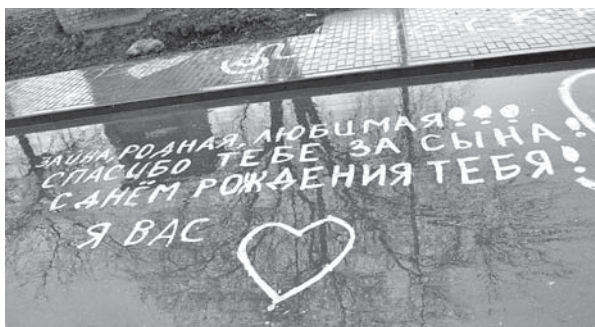 ЗАЙКА, РОДНАЯ, ЛЮБИМАЯ!!!
СПАСИБО ТЕБЕ ЗА СЫНА!
С ДНЁМ РОЖДЕНИЯ ТЕБЯ!
Я ВАС